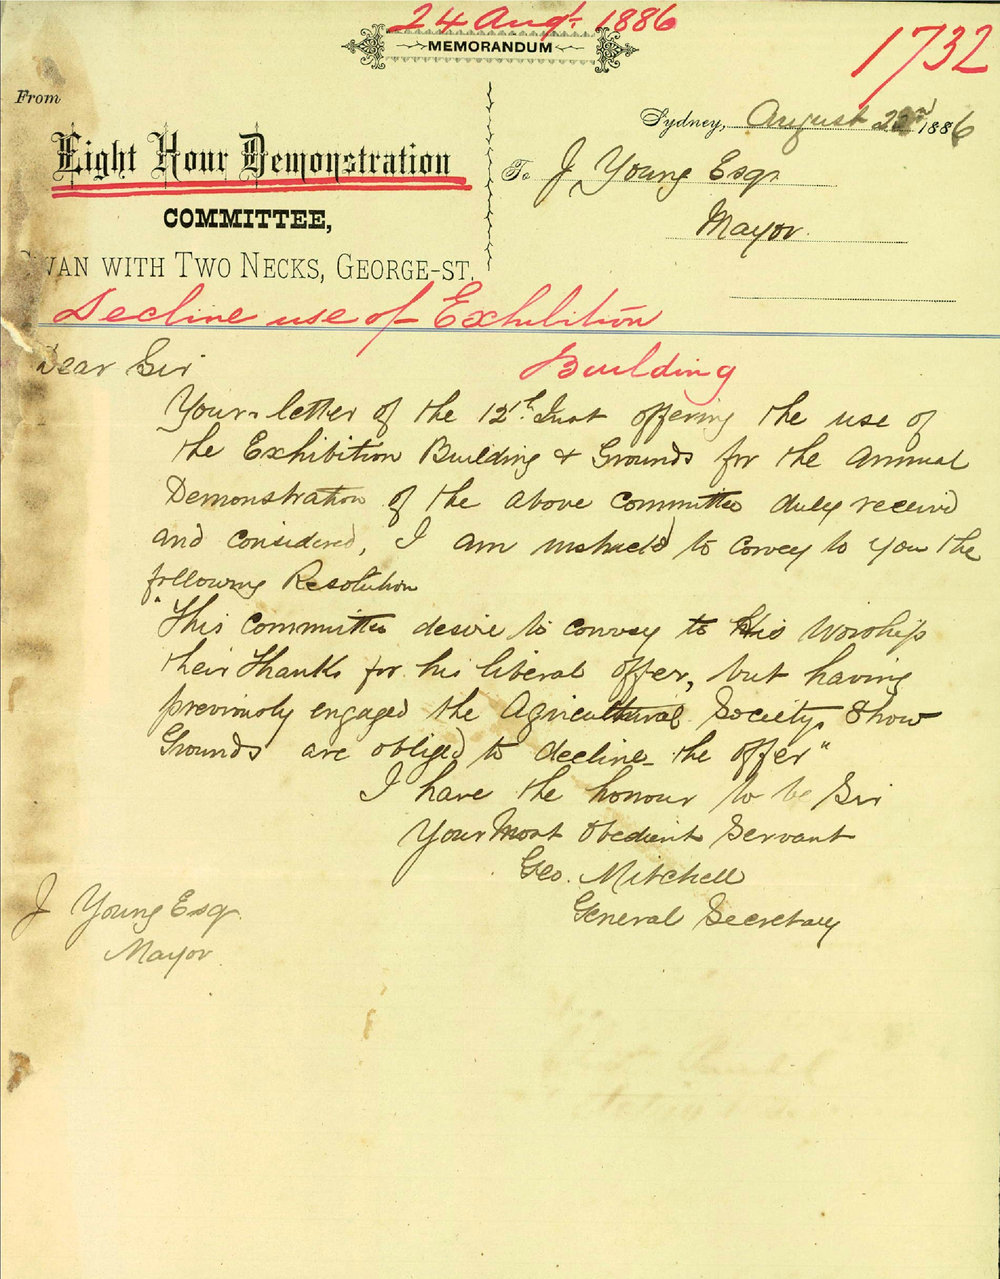 24 Augt 1886
MEMORANDUM
1732
From
Sydney, August 1886
Eight Hour Demonstration
To J Young Esqr
COMMITTEE,
Mayor.
SWAN WITH TWO NECKS, GEORGE-ST.
Decline use of Exhibition
Building
Dear Sir
Your letter of the 12th Inst offering the use of
the Exhibition Building & Grounds for the Annual
Demonstration of the above Committee duly received
and considered, I am instructed to convey to you the
following Resolution
"This Committee desire to convey to His Worship
their thanks for his liberal offer, but having
previously engaged the Agricultural Societys Show
Grounds are obliged to decline the offer"
I have the honour to be Sir
Your Most Obedient Servant
Geo. Mitchell
General Secretary
J Young Esqr
Mayor